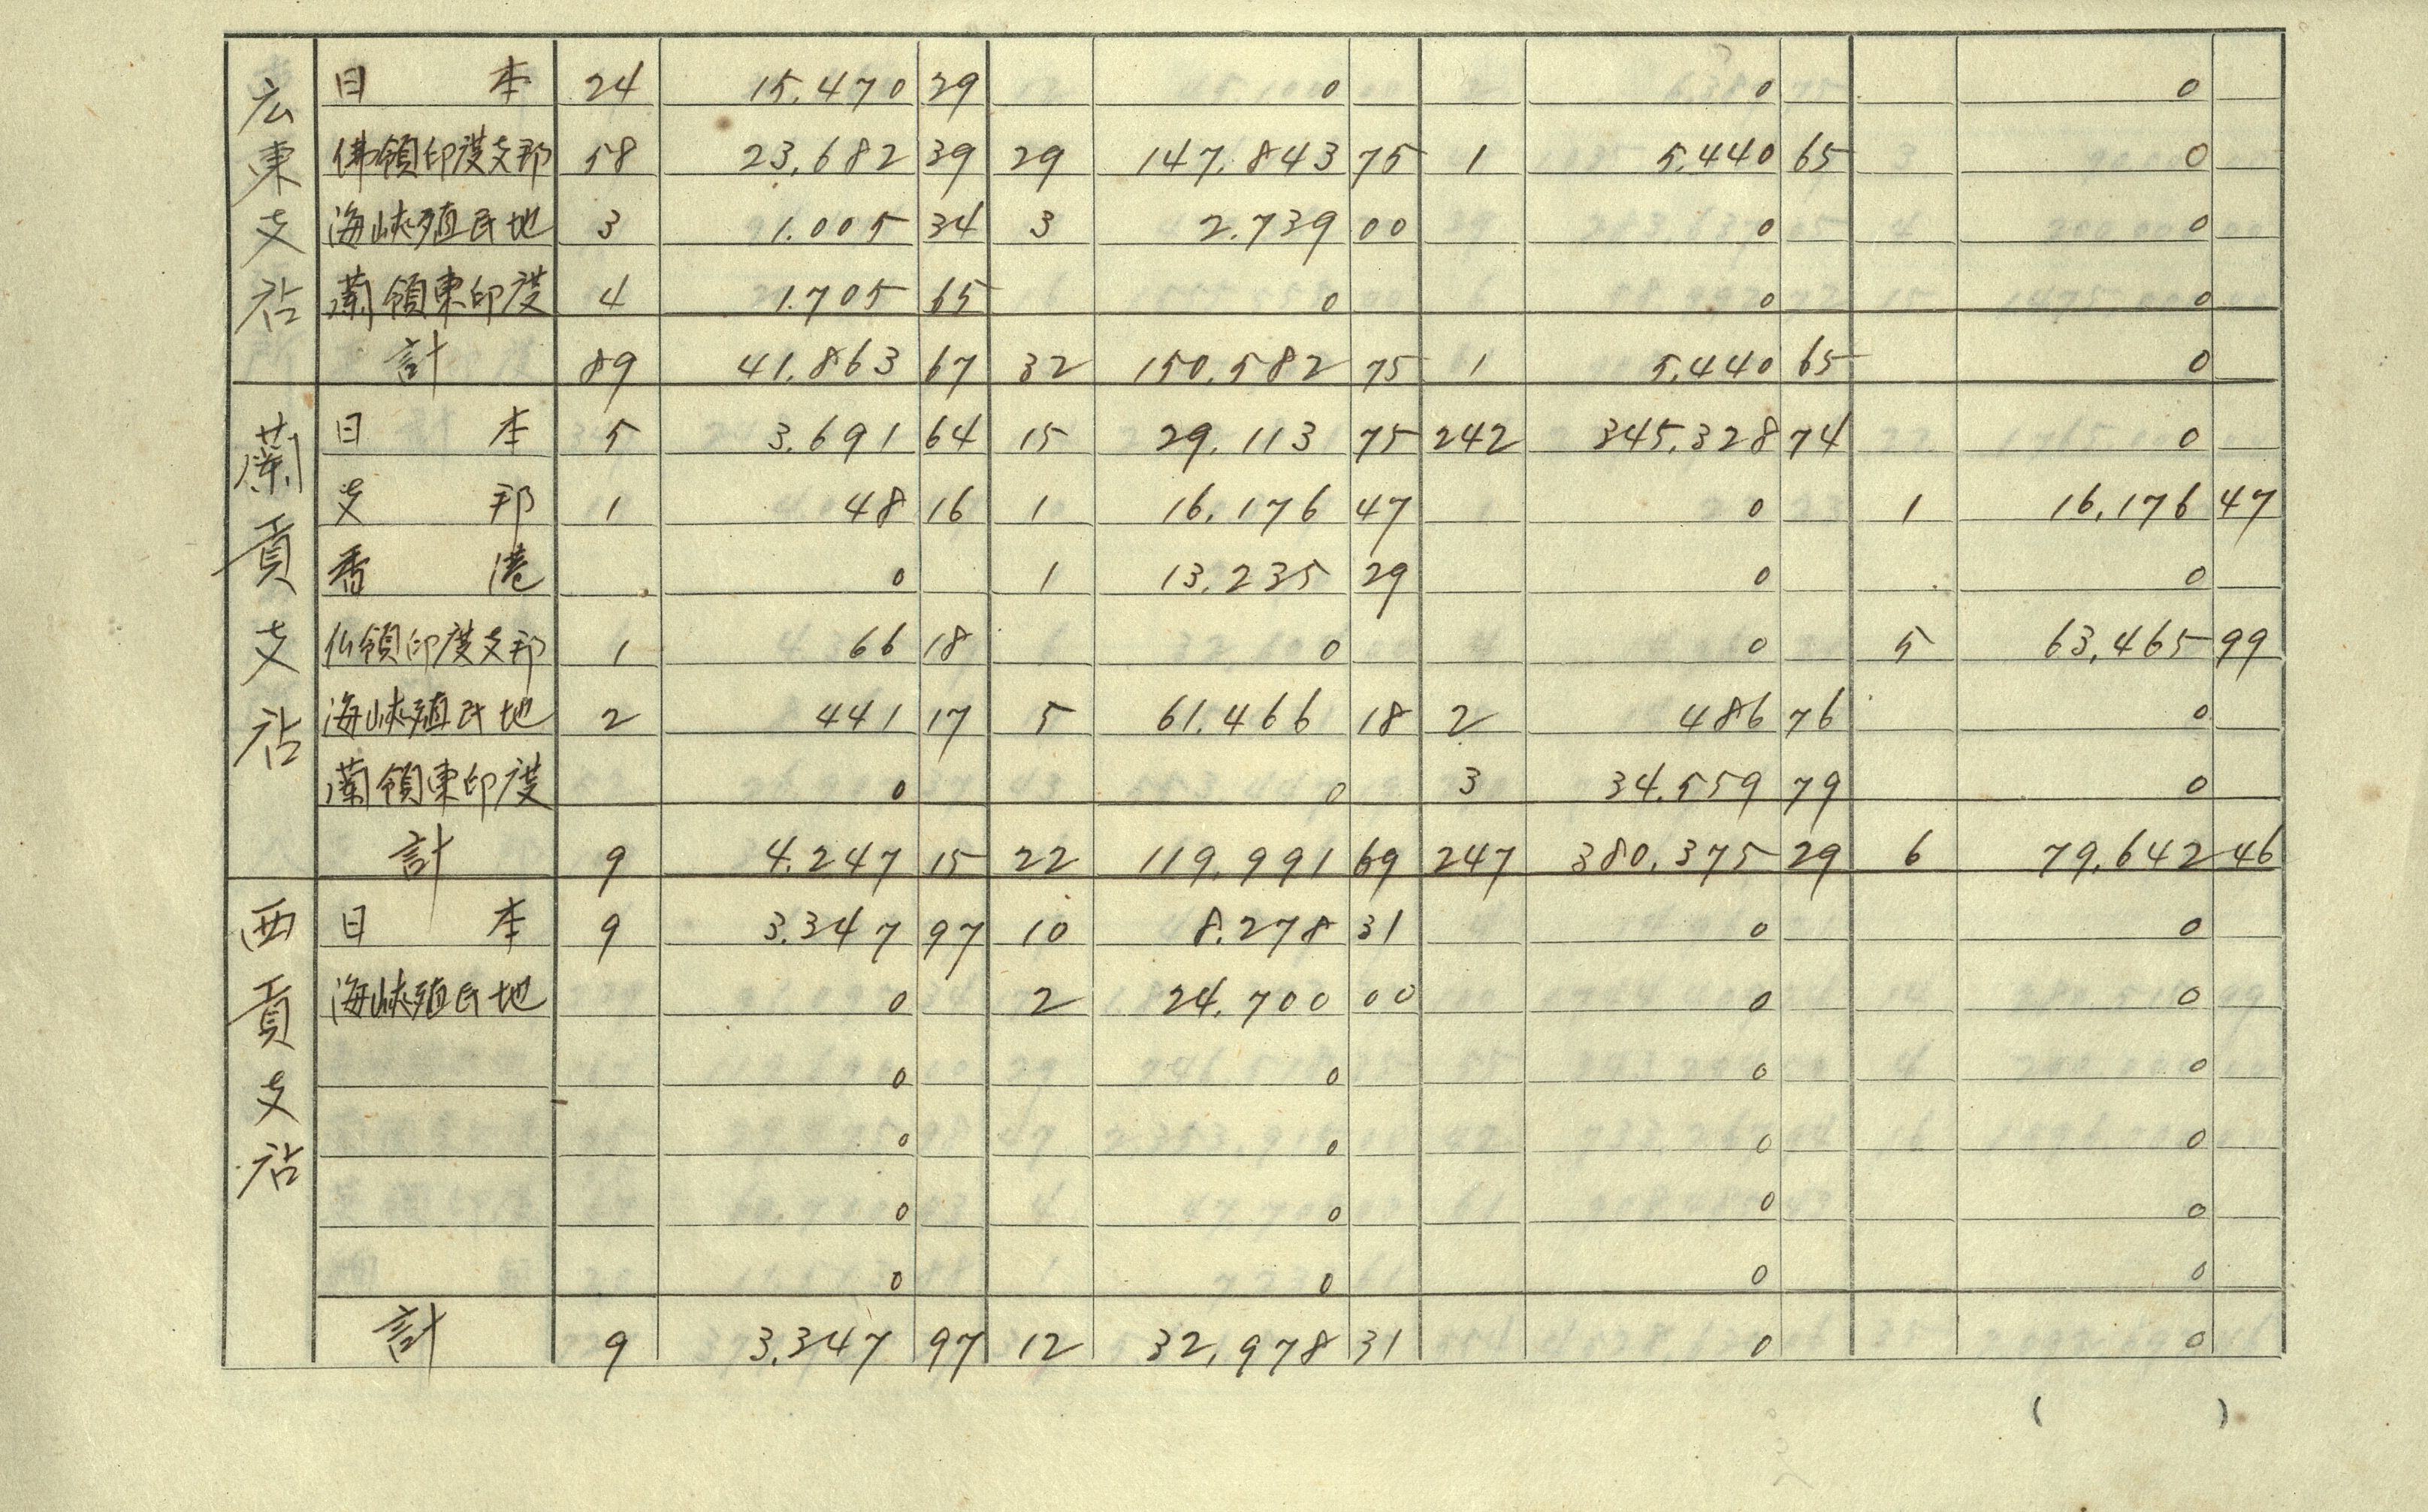 広東支店
日本 24 15.470 29 0 0 0
佛領印度支那 58 23.682 39 29 147.843 75 1 5.440 65 0
海峡殖民地 3 1.005 34 3 2.739 00 0 0
蘭領東印度 4 1.705 65 0 0 0
計 89 41.863 67 32 150.582 75 1 5.440 65 0
蘭貢支店
日本 5 3.691 64 15 29.113 75 242 345.328 74 0
支那 1 48 16 1 16.176 47 0 1 16.176 47
香港 0 1 13.235 29 0 0
仏領印度支那 1 66 18 0 0 5 63.465 99
海峡殖民地 2 441 17 5 61.466 18 2 486 76 0
蘭領東印度 0 0 3 34.559 79 0
計 9 4.247 15 22 119.991 69 247 380.375 29 6 79.642 46
西貢支店
日本 9 3.347 97 10 8.278 31 0 0
海峡殖民地 0 2 24.700 00 0 0
0 0 0 0
0 0 0 0
0 0 0 0
0 0 0 0
計 9 3.347 97 12 32.978 31 0 0
( )